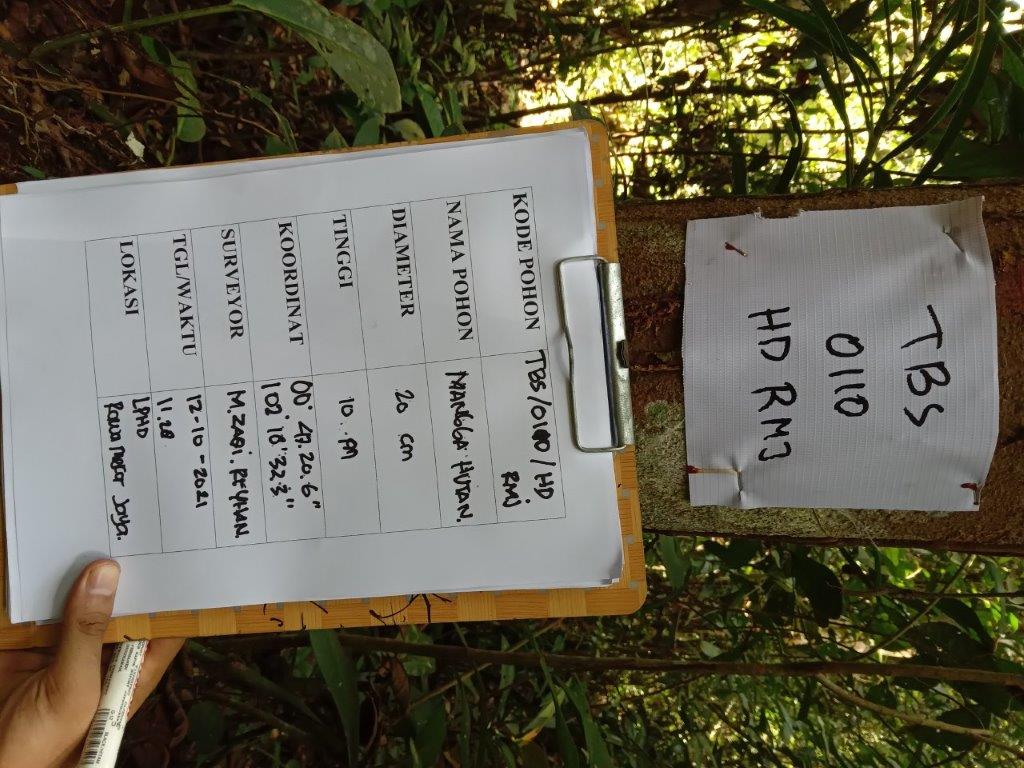 TBS
0110
HD RMJ
KODE POHON TBS/0110/HD
RMJ
NAMA POHON MANGGA HUTAN.
DIAMETER 20 cm
TINGGI 10 M
KOORDINAT 00° 47.20.6"
102° 18" 32.3"
SURVEYOR M.ZAQI. REYHAN.
TGL/WAKTU 12-10-2021
11.28
LOKASI LPHD
Rawa Mekar Jaya.